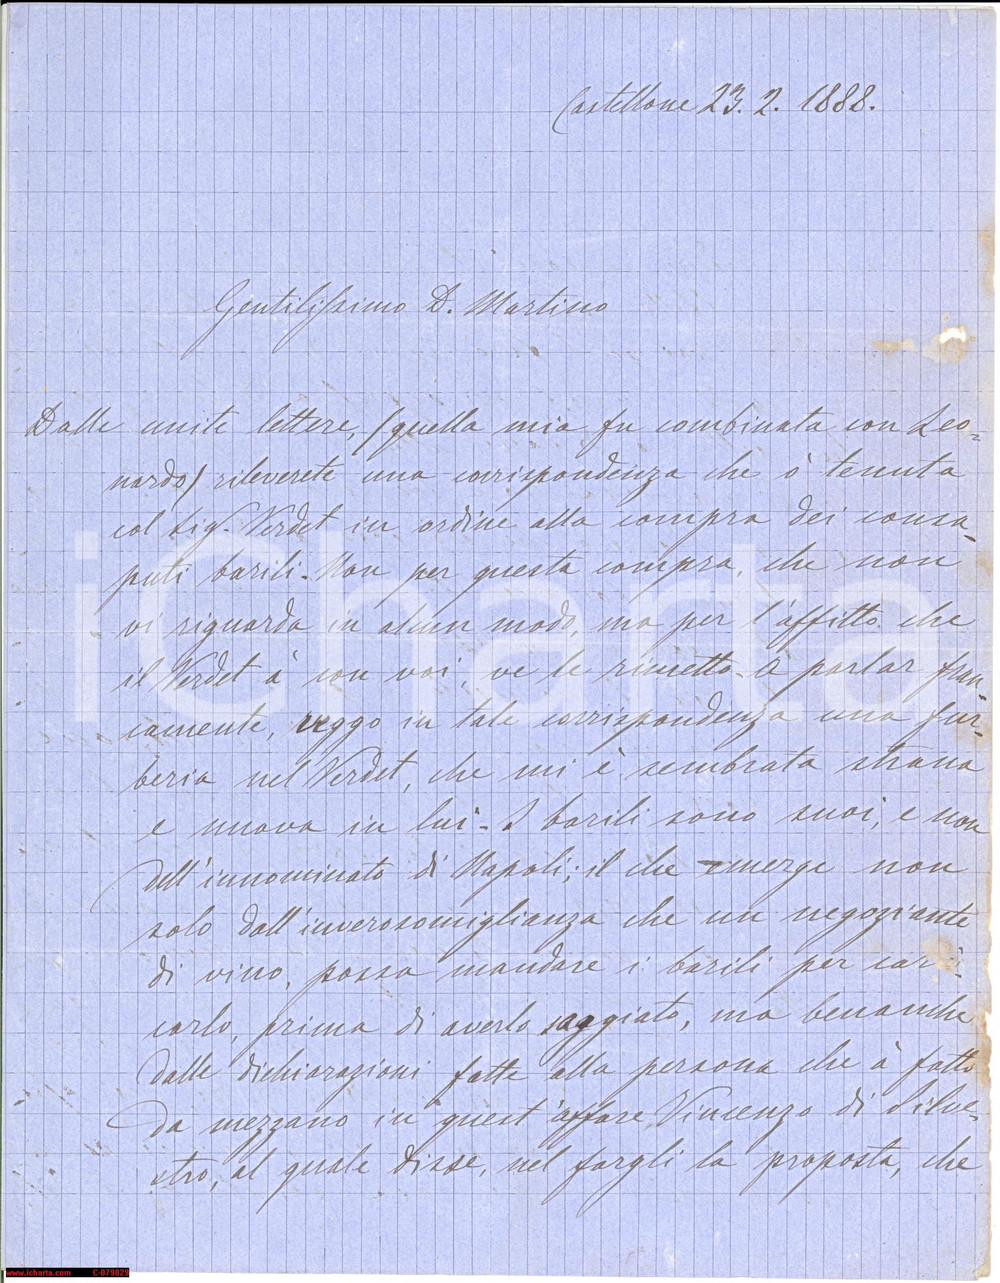 Castellone 23. 2. 1888.
Gentilissimo D. Martino
Dalle unite lettere, (quella mia fu combinata con Leo=
nardo) rileverete una corrispondenza che ò tenuta
col Sig. Verdet in ordine alla compra dei consa-
puti barili. Non per questa compra, che non
vi riguarda in alcun modo, ma per l'affitto che
il Verdet à con voi, ve le rimetto. A parlar fran-
camente, veggo in tale corrispondenza una fur-
beria nel Verdet, che mi è sembrata strana
e nuova in lui. I barili sono suoi, e non
dell'innominato di Napoli; il che emerge non
solo dall'inverosomiglianza che un negoziante
di vino, possa mandare i barili per cari-
carlo, prima di averlo saggiato, ma benanche
dalle dichiarazioni fatte alla persona che à fatto
da mezzano in quest'affare Vincenzo di Silve-
stro, al quale disse, nel fargli la proposta, che
iCharta
www.icharta.com C-079829